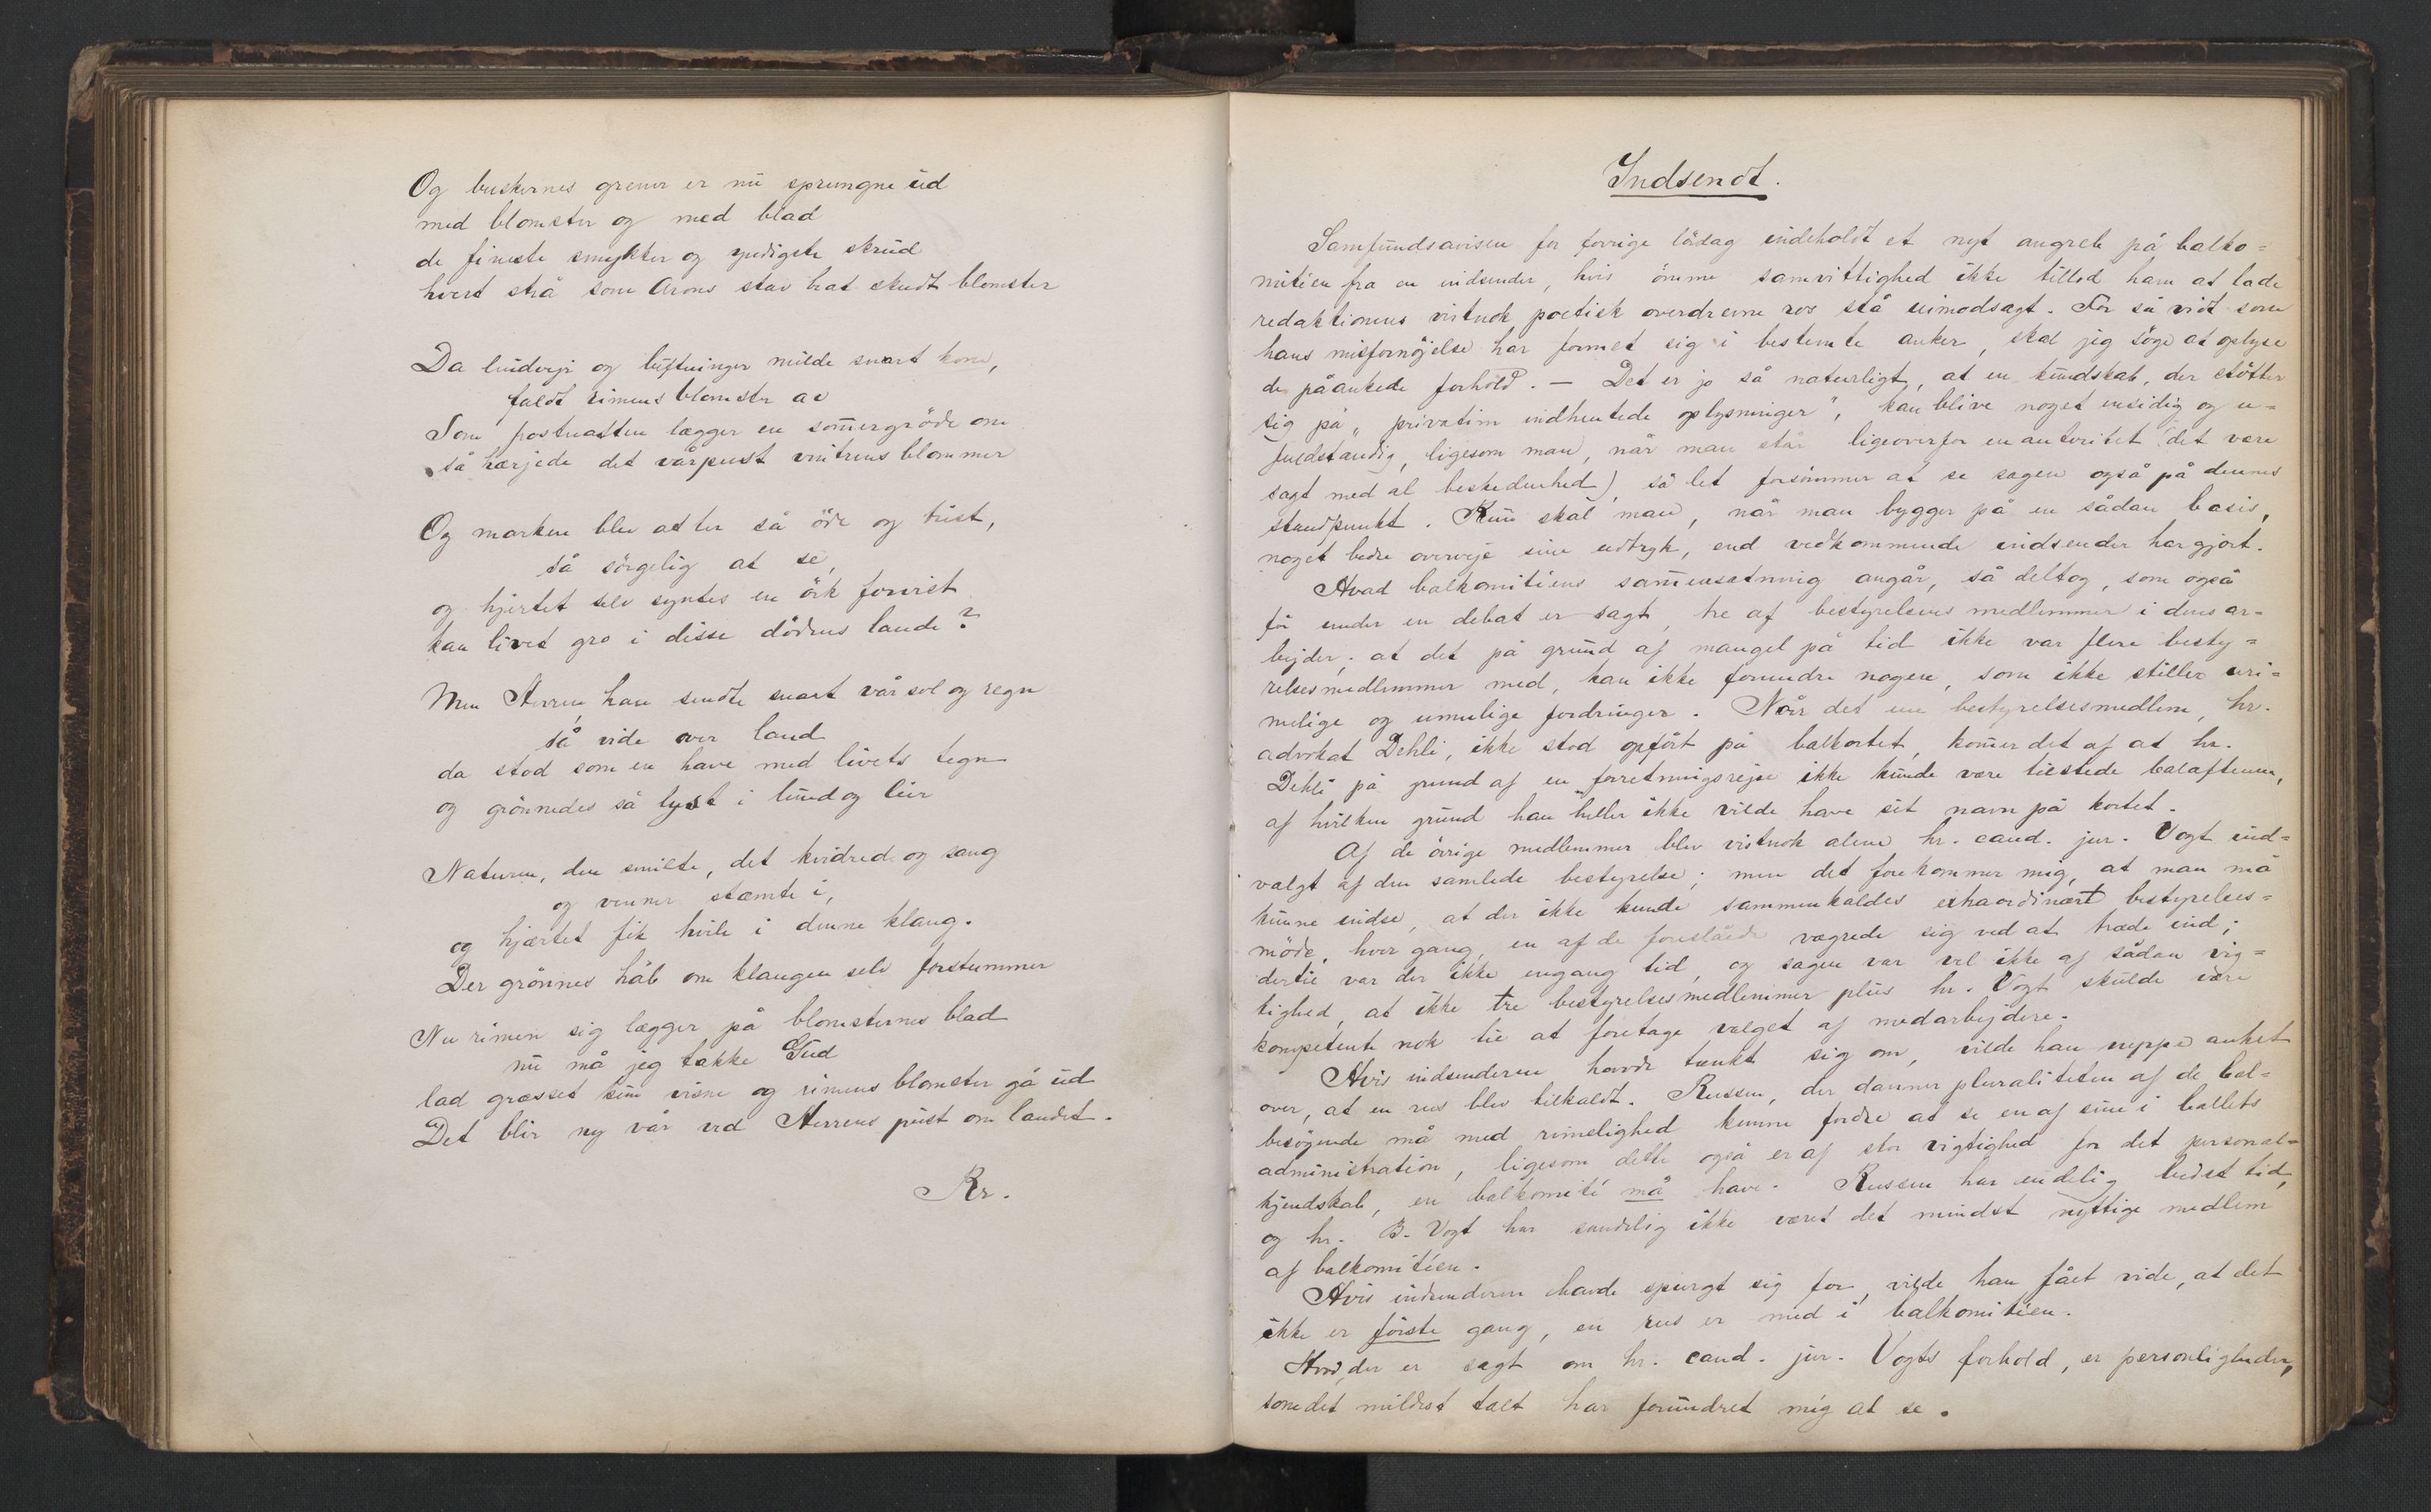 Og buskernes grener er nu sprungne ud
med blomster og med blad
de fineste smykker og yndigste skrud
hvert strå som Arons stav hat skudt blomster
Da lindveir og luftninger milde snart kom,
faldt rimens blomster av
Som postnatten lægger en sommergröde om
så hærjede det vårpust vintrens blommer
Og marken blev atter så öde og trist,
så sörgelig at se,
og hjertet selv syntes en örk forvist
kan livet gro i disse dödens lande?
Men Herren han sendte snart vår sol og regn
så vide over land
da stod som en have med livets tegn
og grönnedes så lyst i lund og leir
Naturen, den smilte, det kvidred og sang
og venner stæmte i,
og hjærtet fik hvile i denne klang.
Der grönnes håb om klangen selv forstummer
Nu rimen sig lægger på blomsternes blad
nu må jeg takke Gud
lad græsset kun visne og rimens blomster gå ud
Det blir ny vår ved Herrens pust om landet.
Kr.
Indsendt.
Samfundsavisen for forrige lördag indeholdt et nyt angreb på balko=
mitéen fra en indsender, hvis ömme samvittighed ikke tillod ham at lade
redaktionens vistnok poetisk overdrevne ros stå uimodsagt. For så vidt som
hans misfornöjelse har formet sig i bestemte anker, skal jeg söge at oplyse
de påankede forhold. — Det er jo så naturligt, at en kundskab, der stötter
sig på "privatim indhentede oplysninger", kan blive noget ensidig og u=
fuldstændig, ligesom man, når man står ligeoverfor en autoritet (det være
sagt med al beskedenhed), så let forsömmer at se sagen også på dennes
standpunkt. Kun skal man, når man bygger på en sådan basis,
noget bedre overveje sine udtryk, end vedkommende indsender har gjort.
Hvad balkomitéens sammensætning angår, så deltog, som også
för under en debat er sagt, tre af bestyrelsens medlemmer i dens ar=
bejder; at det på grund af mangel på tid ikke var flere besty=
relsesmedlemmer med, kan ikke forundre nogen, som ikke stiller uri=
melige og umulige fordringer. Når det ene bestyrelsesmedlem, hr.
advokat Dehli, ikke stod opfört på balkortet, kommer det af at hr.
Dehli på grund af en forretningsrejse ikke kunde være tilstede balaftenen,
af hvilken grund han heller ikke vilde have sit navn på kortet.
Af de övrige medlemmer blev vistnok alene hr. cand. jur. Vogt ind=
valgt af den samlede bestyrelse; men det forekommer mig, at man må
kunne indse, at der ikke kunde sammenkaldes extraordinært bestyrelses=
möde, hver gang en af de foreslåede vægrede sig ved at træde ind;
dertil var der ikke engang tid, og sagen var vel ikke af sådan vig=
tighed, at ikke tre bestyrelsesmedlemmer plus hr. Vogt skulde være
kompetente nok til at foretage valget af medarbejdere.
Hvis indsenderen havde tænkt sig om, vilde han neppe anket
over, at en rus blev tilkaldt. Russen, der danner pluraliteten af de bal=
besögende må med rimelighed kunne fordre at se en af sine i ballets
administration, ligesom dette også er af stor vigtighed for det personal=
kjendskab, en balkomité må have. Russen har endelig bedst tid,
og hr. B. Vogt har sandelig ikke været det mindst nyttige medlem
af balkomitéen.
Hvis indsenderen havde spurgt sig for, vilde han fået vide, at det
ikke er förste gang, en rus er med i balkomitéen.
Hvad der er sagt om hr. cand. jur. Vogts forhold, er personligheder,
som det mildest talt har forundret mig at se.